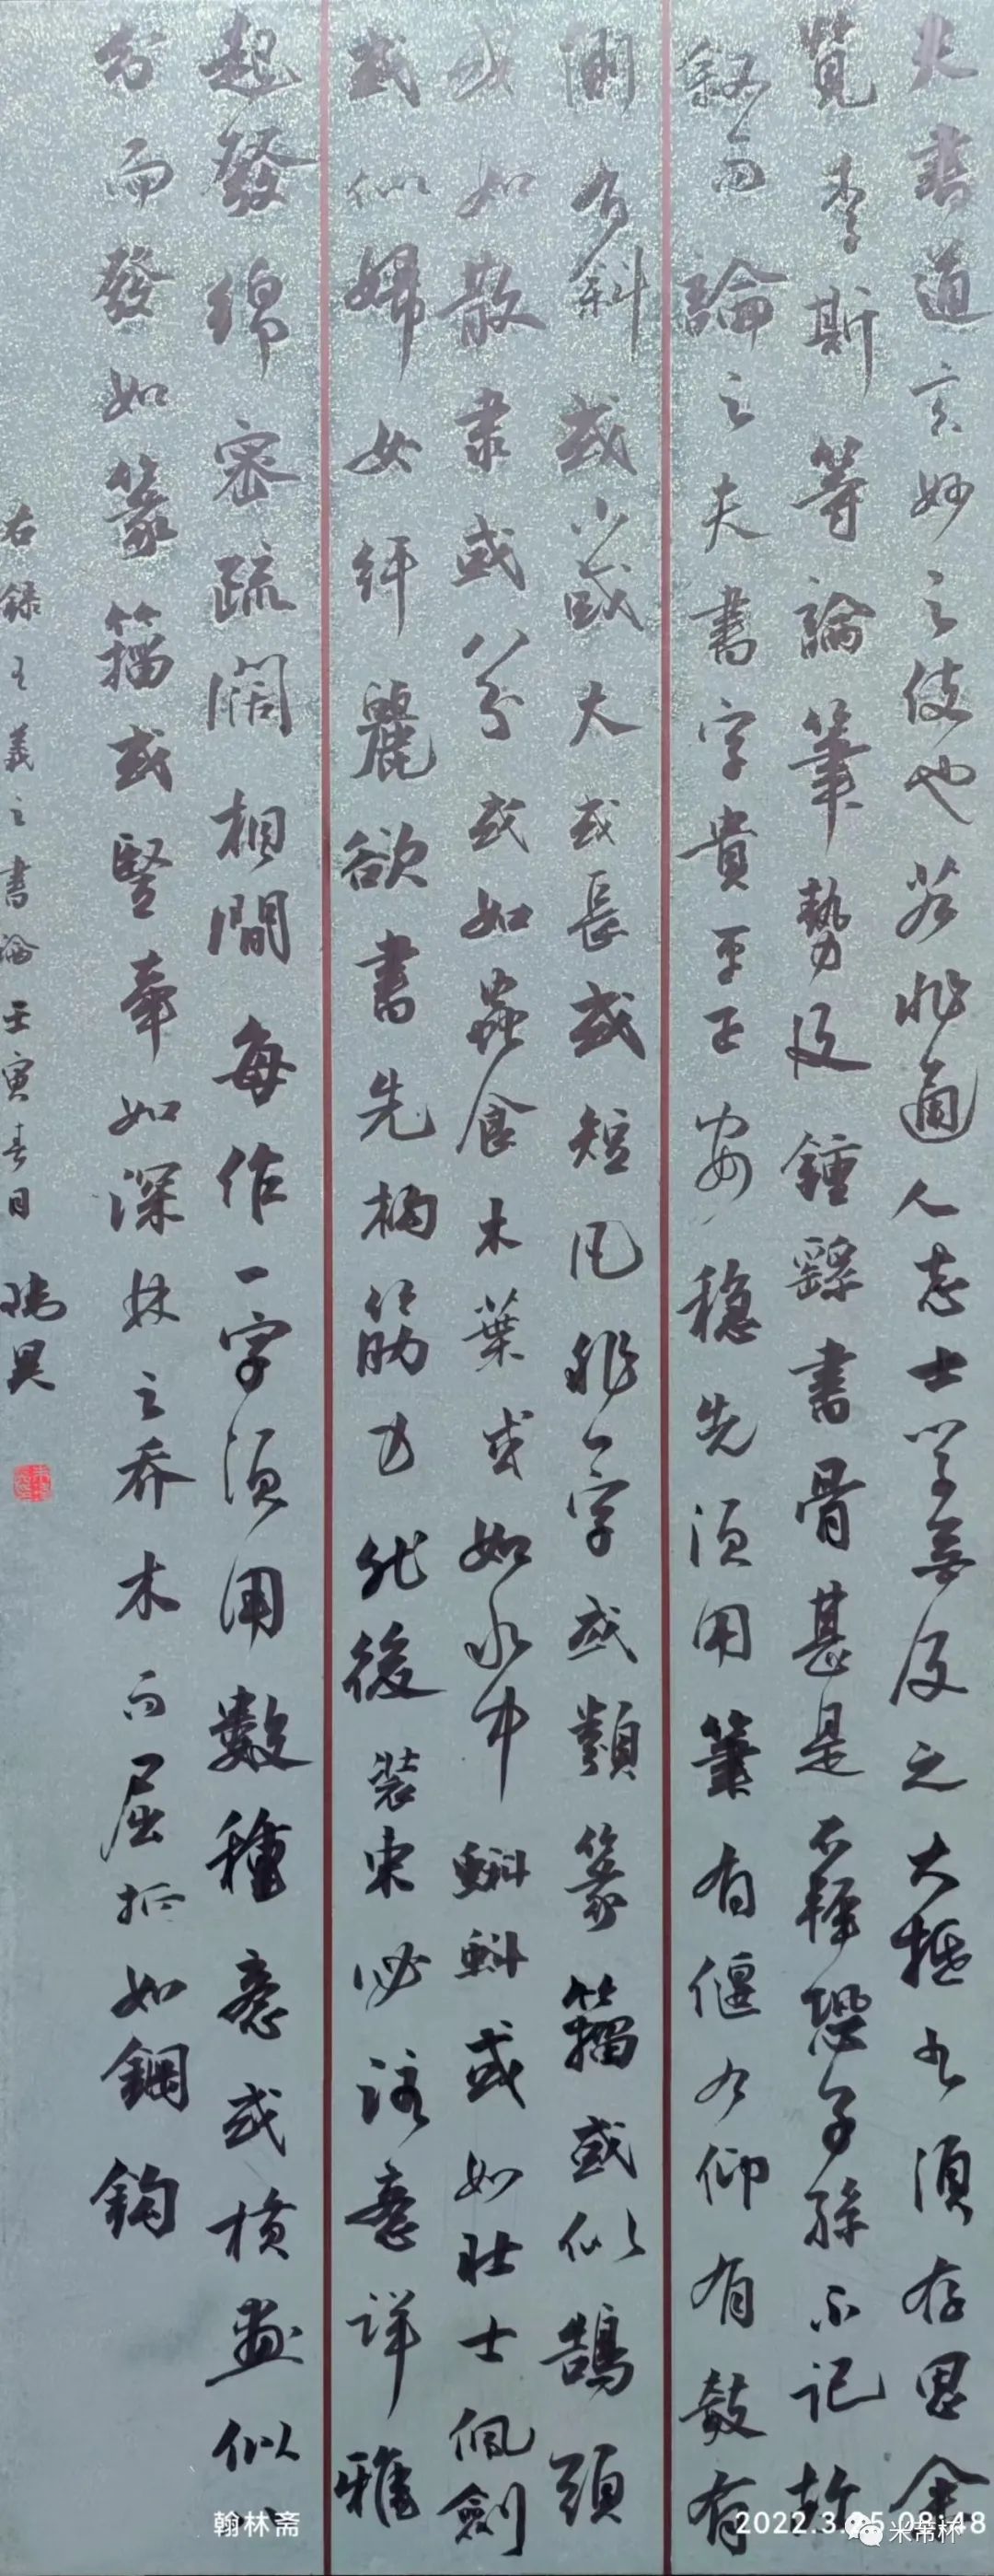 夫書道玄妙之伎也若非通人志士學無及之大抵書須存思余
覽李斯等論筆勢及鍾繇書骨甚是不輕恐子孫不記故
敘而論之夫書字貴平正安穩先須用筆有偃有仰有欹有
側有斜或小或大或長或短凡作一字或類篆籀或似鵠頭
或如散隸或八分或如蟲食木葉或如水中蝌蚪或如壯士佩劍
或似婦女纤麗欲書先構筋力然後裝束必注意詳雅
起發綿密疏闊相間每作一字須用數種意或橫畫似八
分而發如篆籀或竪牽如深林之喬木而屈折如鋼鉤
右錄王羲之書論壬寅春日
翰林斋
2022.3.25 08:48
米芾杯